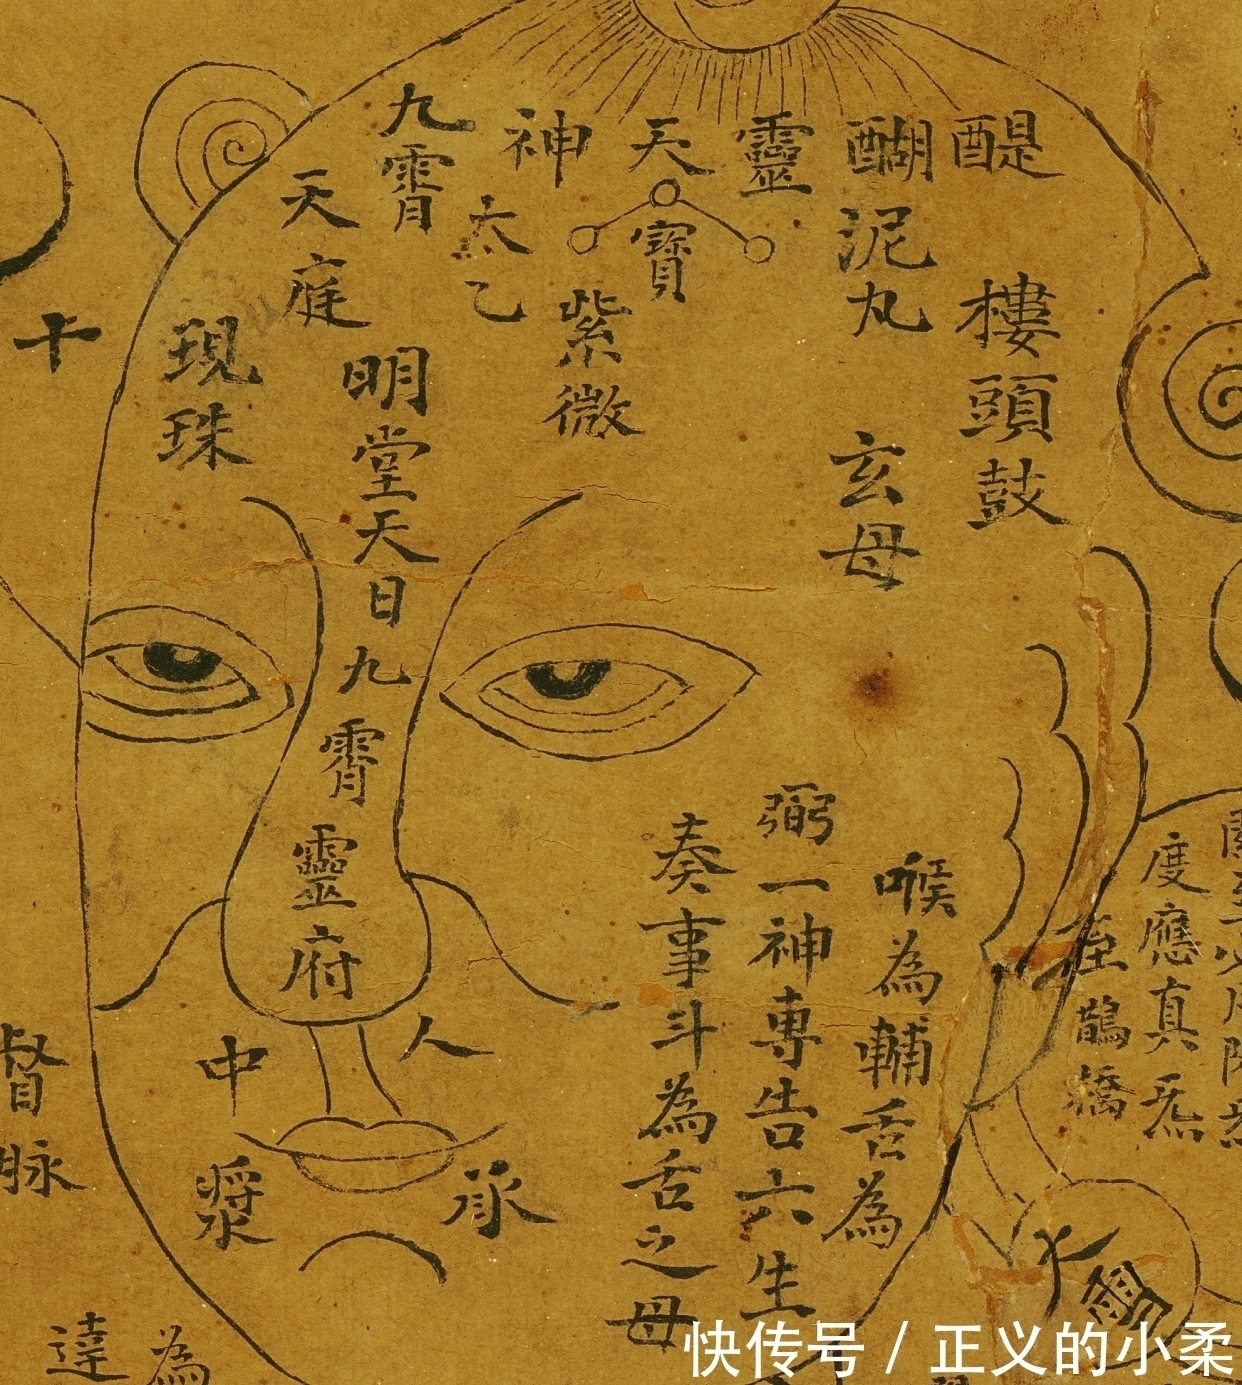 醍醐
靈
天
神
九霄
天庭
太乙
寶
紫微
泥丸
樓頭鼓
玄母
現珠
明堂天日九霄靈府
十
喉為輔舌為
弼一神專告六生
奏事斗為舌之母
度應真炁
至鵲橋
人中
承漿
督脉
達
為
快传号 / 正义的小柔